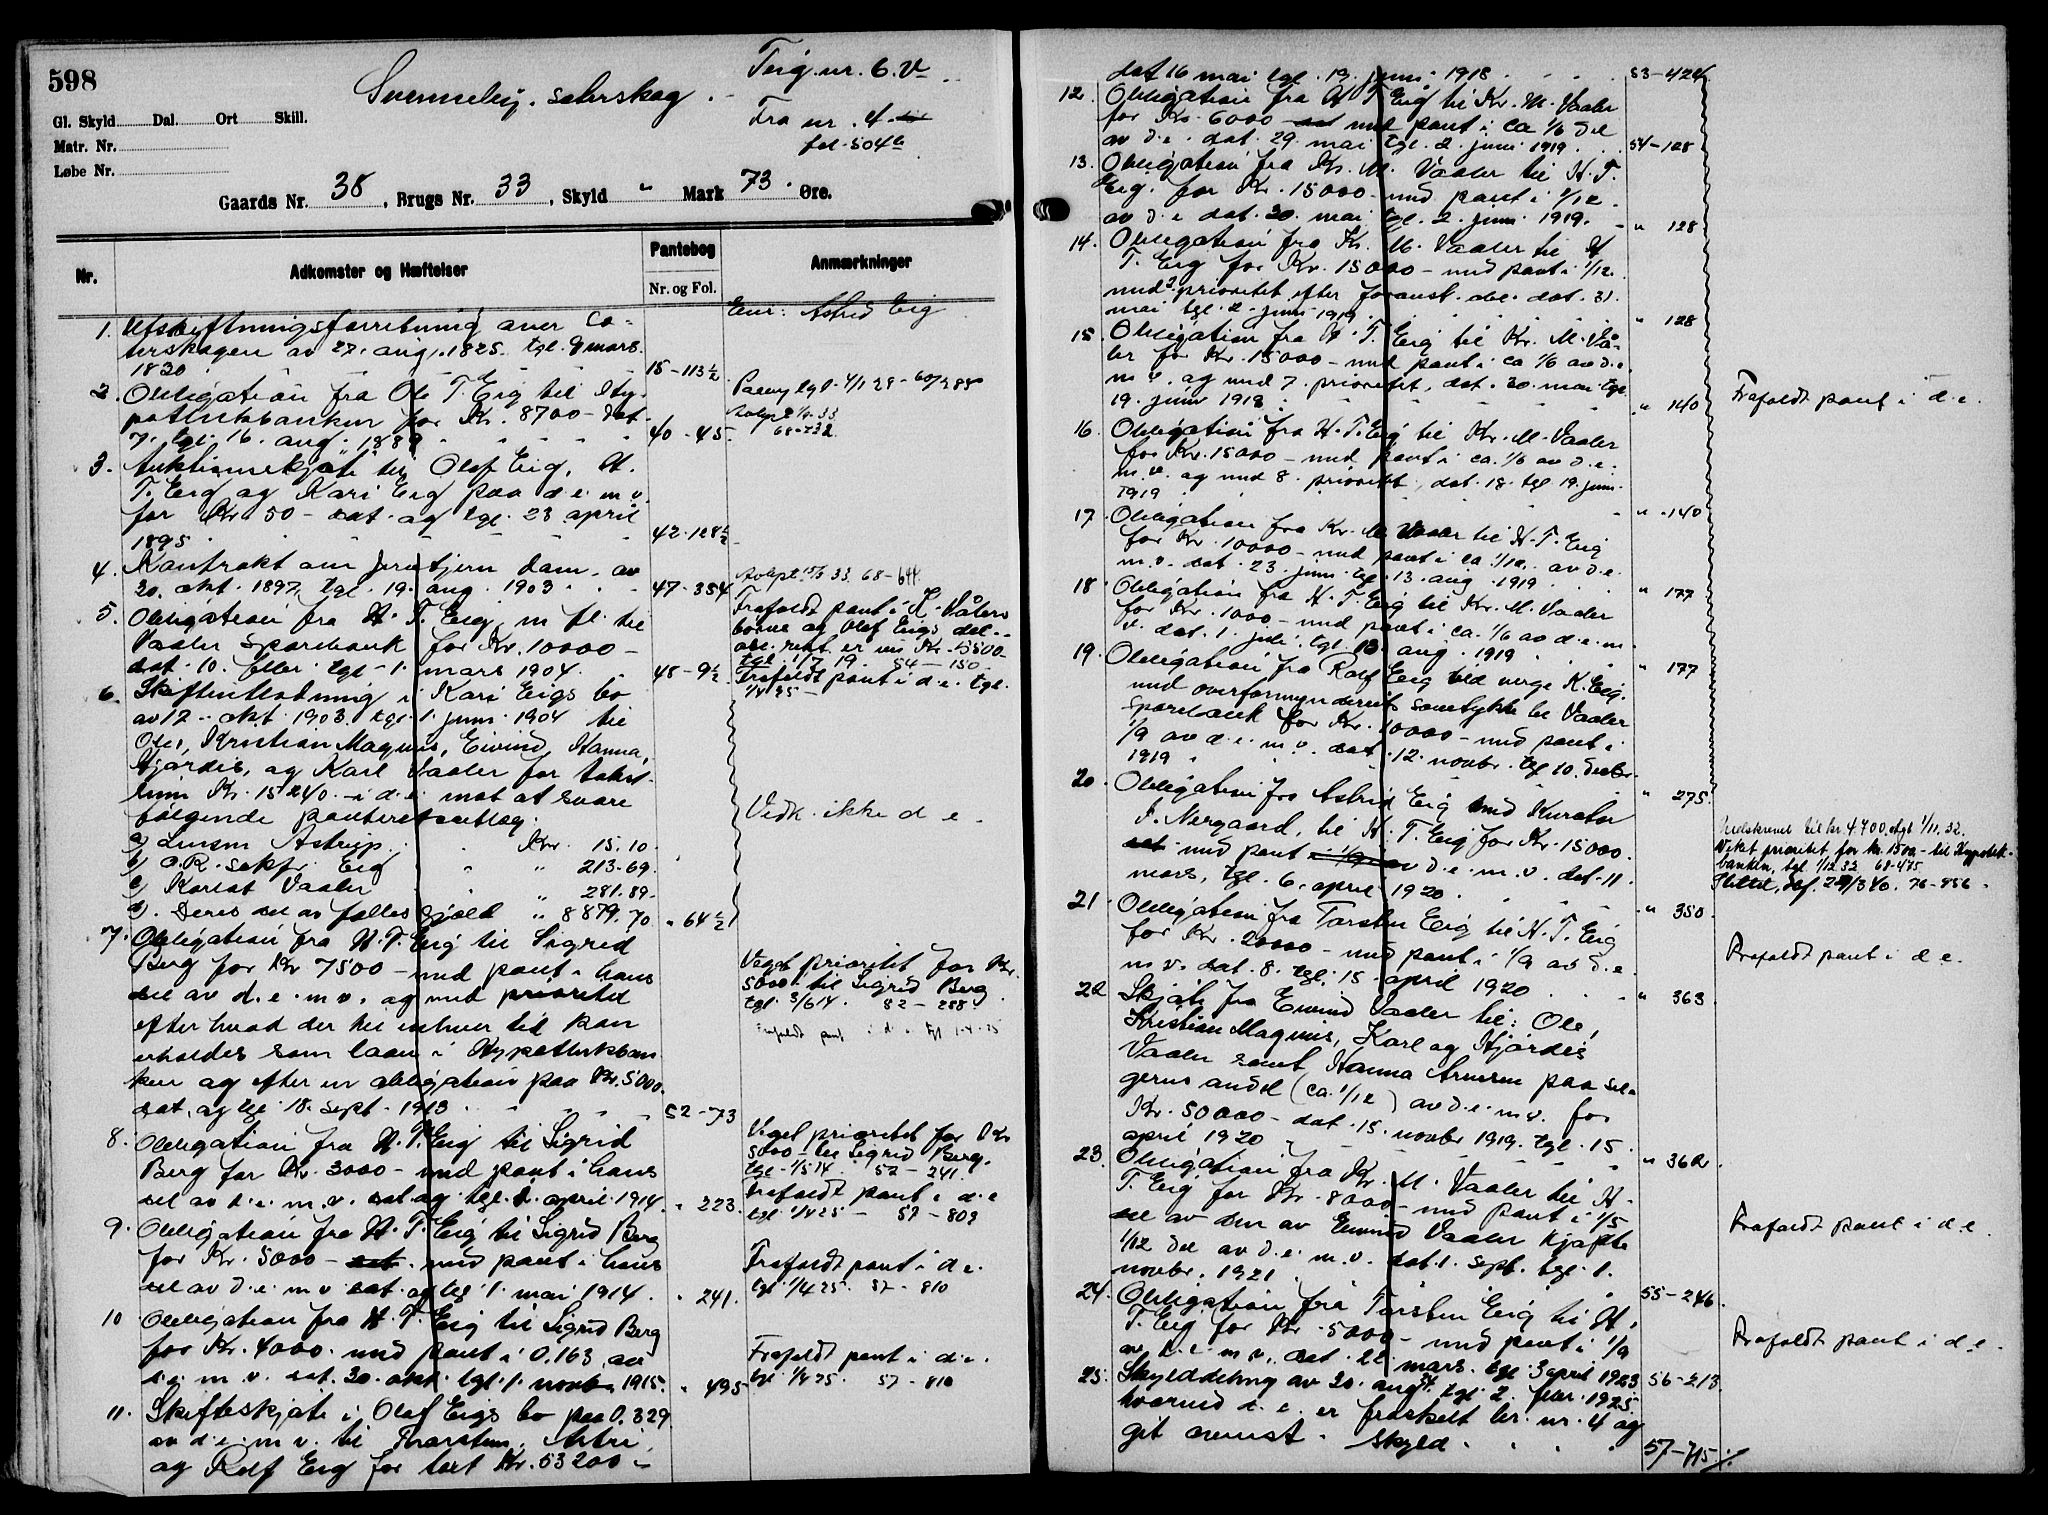 598
Teig nr. 6. V
Svenneby. sæterskog.
Fra nr. 4
fol. 504 b
Gl. Skyld Dal. Ort Skill.
Matr. Nr.
Løbe Nr.
Gaards Nr. 38, Brugs Nr. 33, Skyld " Mark 73. Øre.
Nr. Adkomster og Hæftelser Pantebog Nr. og Fol. Anmærkninger
Eier: Astrid Eig
1. Utskiftningsforretning over Sæ-
terskogen av 27. aug. 1825. tgl. 9 mars.
1830 15-113½
2. Obligation fra Ole T. Eig til Hy-
potekbanken for Kr. 8700- dat
7. tgl. 16. aug. 1889 40-45.
68-732
3. Auktionsskjøte til Olaf Eig, H.
T. Eig og Kari Eig paa d.e. m.v.
for Kr. 50- dat. og tgl. 23 april
1895 42-128½
4. Kontrakt om dam av
30. okt. 1897, tgl. 19. aug. 1903 47-354
Avlyst 15/9 33. 68-644
5. Obligation fra H. T. Eig m. fl. til
Vaaler Sparebank for Kr. 10000-
dat. 10. febr. tgl. 1. mars 1904. 48-9½
Frafaldt pant i K. Vålers
barns og Olaf Eigs del.-
obl. rest. er nu Kr. 5500-
tgl. 1/7 19. 54-150
Frafaldt pant i d.e. tgl.
1/4 25-
6. Skifteutlodning i Kari Eigs bo
av 12. okt. 1903. tgl. 1. juni 1904 til
Ole, Kristian Magnus, Eivind, Hanna,
Hjørdis, og Karl Vaaler for takst-
sum Kr. 15240.- i d.e. mot at svare
følgende panteretsutlæg:
a) Lensm Astrup. Kr. 15.10.
b) O.R. sakf. Eig " 213.69.
c) Karlot Vaaler " 281.89.
d). Deres del av fælles gjæld " 8879.70 " 64½
Vedk. ikke d e.
7. Obligation fra H. T. Eig til Sigrid
Berg for Kr 7500- med pant i hans
del av d.e. m.v. og med prioritet
efter hvad der til enhver tid kan
erholdes som laan i Hypotekban
ken og efter en obligation paa Kr. 5000.
dat. og tgl. 18. sept. 1913 52-73
Veget prioritet for Kr.
5000- til Sigrid Berg
tgl. 3/6 14. 52-258.
Frafaldt pant i d.e. tgl 1-4-25
8. Obligation fra H. T. Eig til Sigrid
Berg for Kr. 3000- med pant i hans
del av d.e. m.v. dat og tgl. 1. april 1914. " 223.
Veget prioritet for Kr
5000- til Sigrid Berg.
tgl. 1/5 14. 52-241.
Frafaldt pant i d.e
tgl. 1/4 25- 57-809
9. Obligation fra H. T. Eig til Sigrid Berg
for Kr. 5000- med pant i hans
del av d.e. m.v dat. og tgl. 1. mai 1914. " 241.
Frafaldt pant i d.e.
tgl. 1/4 25. 57-810
10 Obligation fra H. T. Eig til Sigrid Berg
for Kr. 4000. med pant i 0.163 av
d.e. m.v. dat. 30. okt. tgl. 1. novbr 1915. " 495
Frafaldt pant i d.e.
tgl. 1/4 25. 57-810
11. Skifteskjøte i Olaf Eigs bo paa 0.329
av d.e. m.v. til Thorsten, Astri,
og Rolf Eig for tilst Kr. 53200-
dat 16 mai tgl. 19. juni 1918 53-424.
12. Obligation fra H T Eig til Kr. M. Vaaler
for Kr. 6000 med pant i ca 1/6 del
av d.e. dat. 29. mai tgl. 2. juni 1919 54-128
13. Obligation fra Kr. M. Vaaler til H. T.
Eig. for Kr. 15000- med pant i 1/12
av d.e dat. 30. mai tgl. 2. juni 1919. " 128
14. Obligation fra Kr. M. Vaaler til H
T. Eig for Kr. 15000- med pant i 1/12
med 2. prioritet efter foranst. obl. dat. 31.
mai tgl. 2. juni 1919 " 128
15. Obligation fra H. T. Eig til Kr. M. Vaa-
ler for Kr. 15000- med pant i ca 1/6 av d.e.
m.v. og med 7. prioritet, dat. 30. mai tgl.
19. juni 1919 " 140
Frafaldt pant i d.e.
16. Obligation fra H. T. Eig til Kr. M. Vaaler
for Kr. 15000- med pant i ca. 1/6 av d.e.
m.v. og med 8. prioritet, dat. 18. tgl 19. juni
1919 " 140
17. Obligation fra Kr. M. Vaaler til H. T. Eig
for Kr. 10000- med pant i ca 1/12 av d.e.
m.v. dat. 23. juni. tgl. 13. aug. 1919 " 177
18 Obligation fra H. T. Eig til Kr. M. Vaaler
for Kr. 1000- med pant i ca. 1/6 av d.e. m.
v. dat. 1. juli. tgl. 13. aug. 1919 " 177
19. Obligation fra Rolf Eig ved verge K. Eig.
med overformynderiets samtykke til Vaaler
Sparebank for Kr. 10000- med pant i
1/9 av d.e. m.v. dat. 12. novbr. tgl 10. decbr
1919 " 275.
20. Obligation fra Astrid Eig med Kurator
J. Nergaard, til H. T. Eig for Kr. 15000.
med pant i 1/9 av d.e. m.v. dat. 11.
mars, tgl. 6. april 1920. " 350
Nedskrevet til kr. 4.700. tgl 1/11. 32.
Vekt prioritet for kr. 1500.- til Hypotek-
banken, tgl. 1/12 32 68-475
Slettet, 76-856
21. Obligation fra Torsten Eig til H. T. Eig
for Kr. 20000- med pant i 1/9 av d.e.
m.v. dat. 8. tgl. 15 april 1920 " 363
Frafaldt pant i d.e.
22 Skjøte fra Eivind Vaaler til: Ole,
Kristian Magnus, Karl og Hjørdis
Vaaler samt Hanna Arnesen paa sel-
gerens andel (ca. 1/12) av d.e. m.v. for
Kr. 50000- dat. 15. novbr 1919. tgl. 15.
april 1920 " 362.
23. Obligation fra Kr. M. Vaaler til H.
T. Eig for Kr. 8000- med pant i 1/5
del av den av Eivind Vaaler kjøpte
1/12 del av d.e. m.v. dat. 1. sept. tgl. 1.
novbr. 1921. 55-246.
Frafaldt pant i d.e.
24. Obligation fra Torsten Eig til H.
T. Eig for Kr. 5000- med pant i 1/9
av d.e. m.v. dat. 22 mars. tgl. 3 april 1923 56-213
Frafaldt pant i d.e.
25. Skylddeling av 20. aug. 24. tgl. 2. febr. 1925
hvorved d.e. er fraskilt br. nr. 4 og
git ovenst. skyld. 57-715